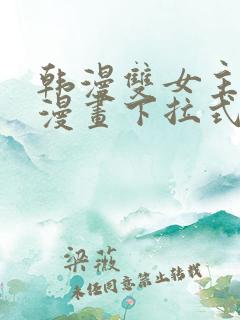 韩漫雙女主
漫畫下拉式
梁薇
未经同意禁止转载